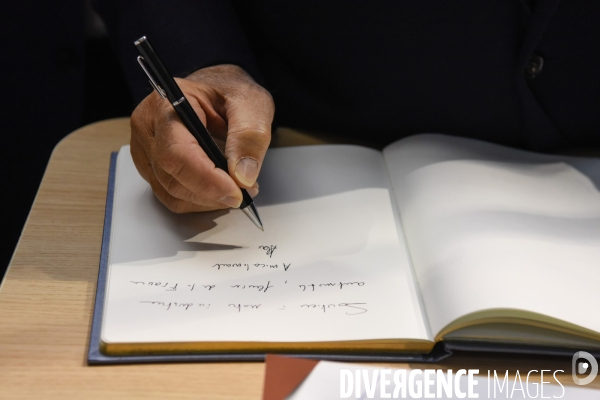 Soutien à notre industrie
automobile, fierté de la France
Amicalement
DIVERGENCE IMAGES